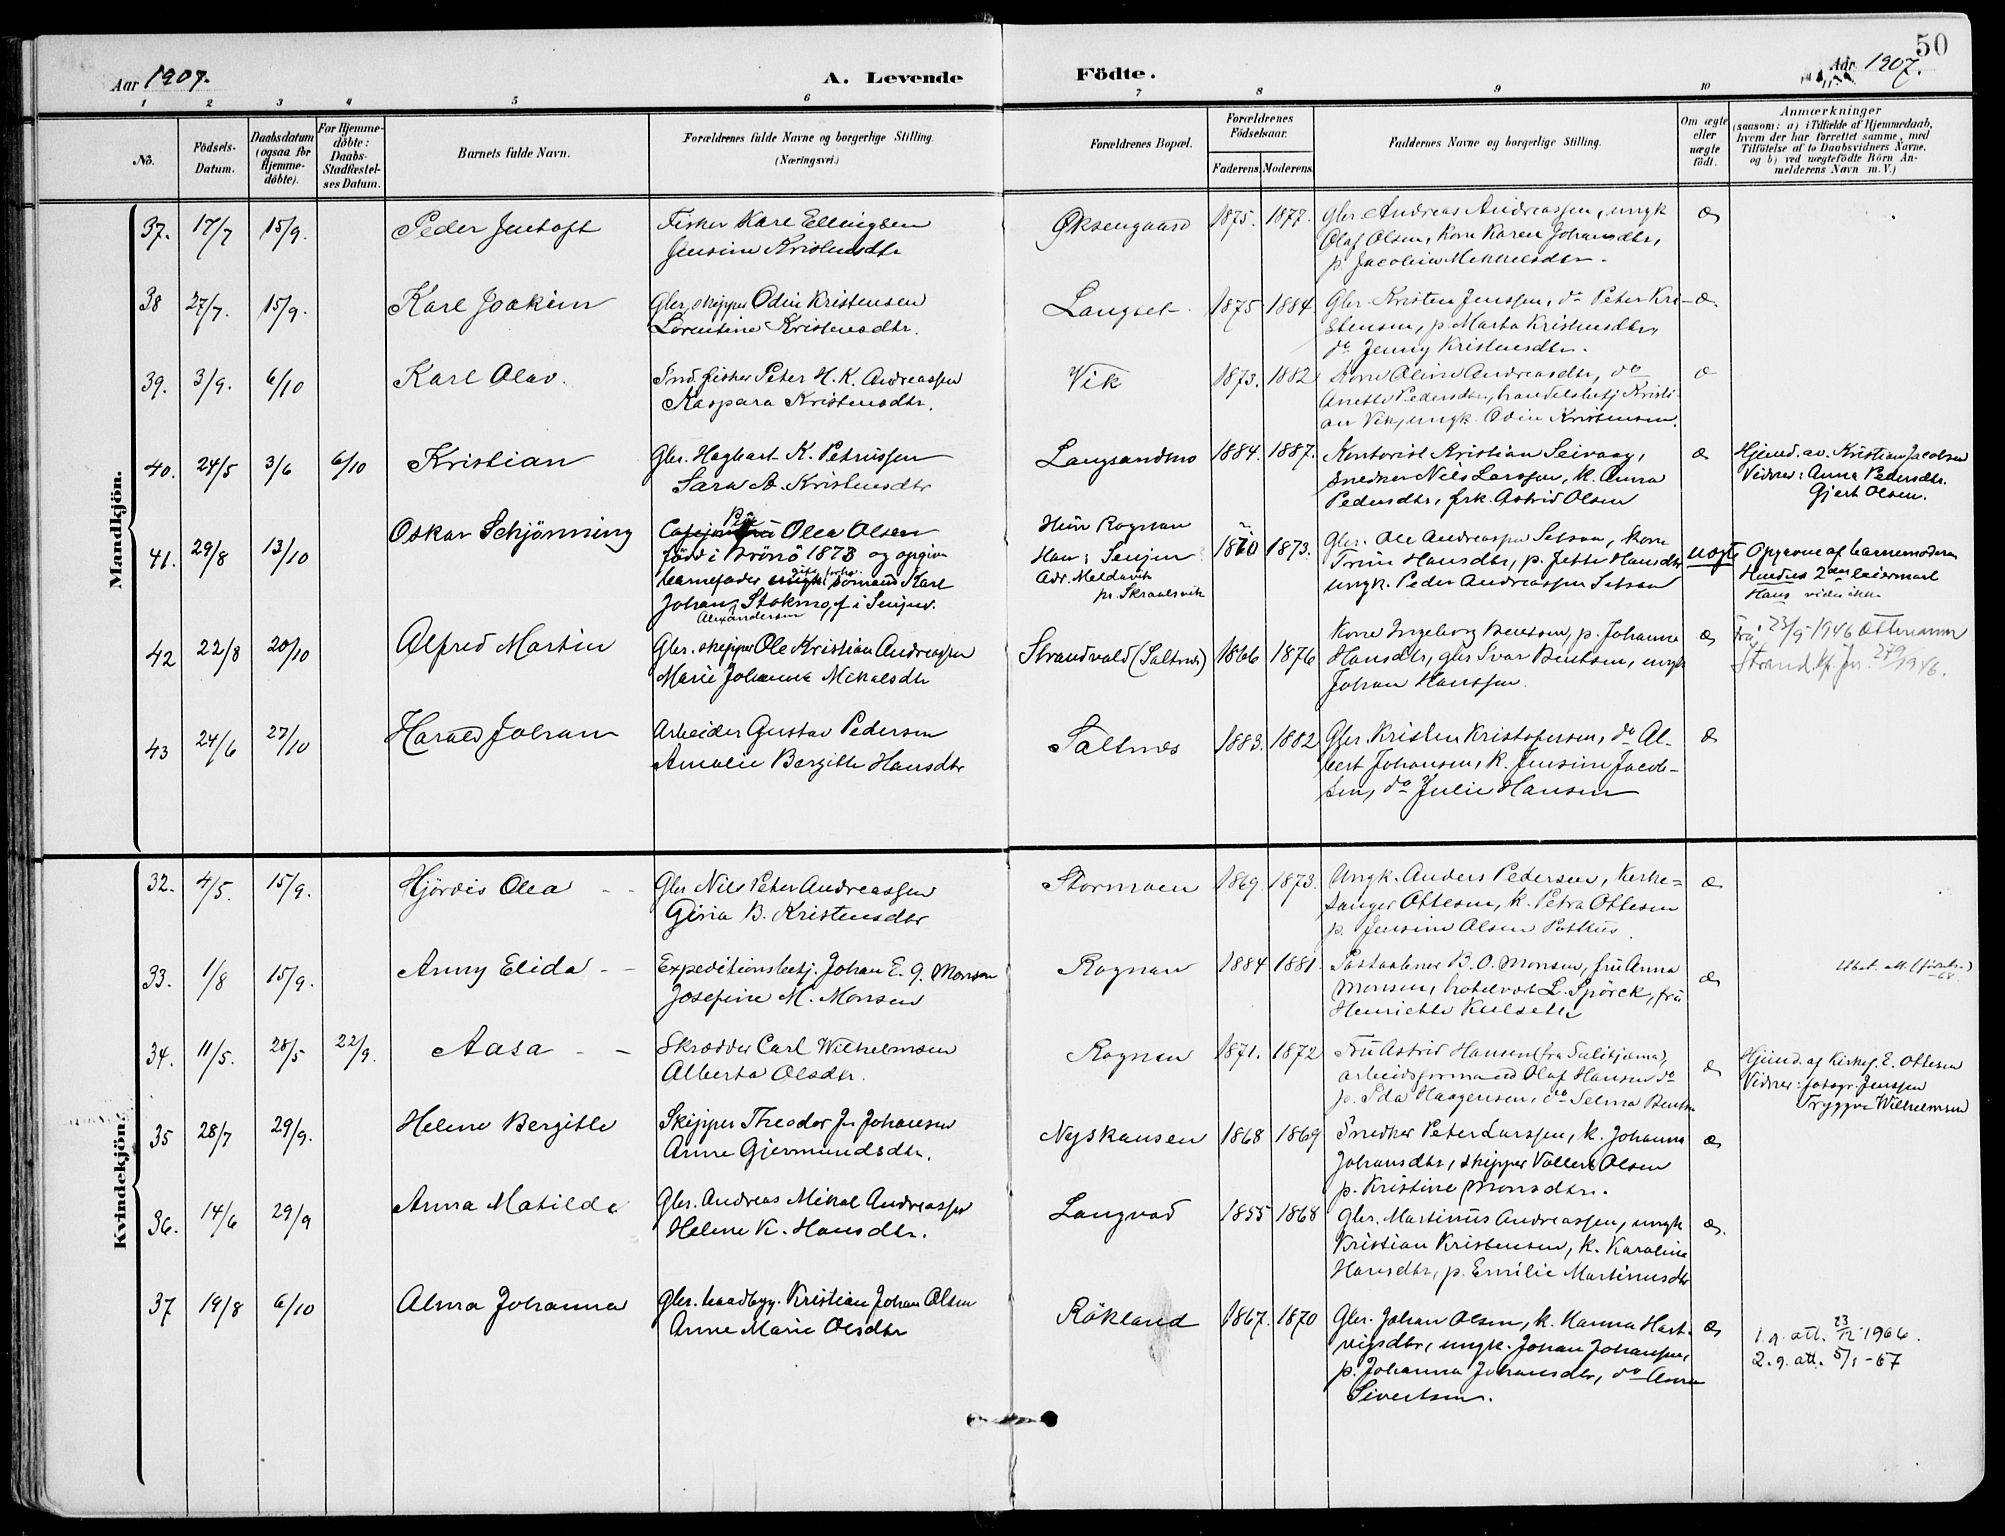 50
Aar 1907.
A. Levende Födte.
Aar 1907.
1 2 3 4 5 6 7 8 9 10
No.
Födsels-
Datum.
Daabsdatum
(ogsaa for
Hjemme-
döbte).
For Hjemme-
döbte:
Daabs-
Stadfæstel-
ses Datum.
Barnets fulde Navn.
Forældrenes fulde Navne og borgerlige Stilling.
(Næringsvei.)
Forældrenes Bopæl.
Forældrenes
Födselsaar.
Faderens. Moderens.
Faddernes Navne og borgerlige Stilling.
Om ægte
eller
uægte
födt.
Anmærkninger
(saasom: a) i Tilfælde af Hjemmedaab,
hvem der har forrettet samme, med
Tilföielse af to Daabsvidners Navne,
og b) ved uægtefödte Börn An-
melderens Navn m. V.)
Mandkjön.
37. 17/7 15/9. Peder Jentoft
Fisker Karl Ellingsen
Jensine Kristensdtr
Øksengaard 1875. 1877.
Gbr. Andreas Andreassen, ungk
Olaf Olsen, kone Karen Johansdtr,
p. Jacobine Mikkelsdtr.
æ
38 27/7. 15/9. Karl Joakim
Gbr. skipper Odin Kristensen
Lorentine Kristensdtr.
Langset 1875 1884.
Gbr. Kristen Jenssen, do Peter Kri-
stensen, p. Marta Kristensdtr,
do Jenny Kristensdtr.
æ.
39. 3/9. 6/10 Karl Olav.
Ind. fisker Peter H. K. Andreassen
Kaspara Kristensdtr.
Vik 1873. 1882
Kone Oline Andreasdtr, do
Anette Pedersdtr, handelsbetj Kristi-
an Vik, ungk. Odin Kristensen.
æ
40. 24/5 3/6 6/10 Kristian
Gbr. Hagbart K. Petrussen
Sara A. Kristensdtr
Langsandmo 1884. 1887.
Kontorist Kristian Seivaag,
snedker Nils Larssen, k. Anna
Pedersdtr, frk. Astrid Olsen
æ
Hjemd. av. Kristian Jacobsen
Vidner: Anna Pedersdtr.
Gjert Olsen.
41. 29/8 13/10 Oskar Schjönning
Pie Olea Olsen
född i Brönö 1873 og opgivn
barnefader gift forhv. sömand Karl
Johan Stokmo, f i Senjen.
Alexandersen
Hun Rognan
Han: Senjen
Adr. Meldavik
pr. Skraalsvik
1870 1873.
Gbr. Ole Andreassen Setsaa, kone
Trine Hansdtr, p. Jette Hansdtr
ungk. Peder Andreassen Setsaa
uægte
Opgivne af barnemoderen
Hendes 2det leiermaal
Hans vides ikke
42 22/8 20/10 Alfred Martin
Gbr. skipper Ole Kristian Andreassen
Marie Johanna Mikalsdtr
Strandvold (Saltnes) 1866 1876
Kone Ingeborg Bentsen, p. Johanne
Hansdtr, gbr Ivar Bentsen, ungk
Johan Hanssen.
æ
Fra 23/5 1946 etternavn
Strand.
43 24/6 27/10 Harald Johan
Arbeider Gustav Pedersen
Amalie Bergitte Hansdtr
Saltnes 1883. 1882
Gbr. Kristen Kristofersen, do Al-
bert Johansen, k. Jensine Jacob-
sen, do Julie Hansen
æ
Kvindekjön.
32. 4/5. 15/9. Hjördis Olea
Gbr Nils Peter Andreassen
Gina B. Kristensdtr
Stormoen 1869. 1873.
Ungk. Anders Pedersen, kirke-
sanger Ottesen, k. Petra Ottesen
p. Jensine Olsen
æ
33. 1/8 15/9. Anny Elida
Expeditionsbetj. Johan E. G. Monsen
Josefine M. Monsen
Rognan 1884 1881.
Postaabner B. O. Monsen, fru Anna
Monsen, hotelvert L. Spörck, fru
Henriette
æ
34. 11/5. 28/5 22/9. Aasa
Skrædder Carl Wilhelmsen
Alberta Olsdtr.
Rognan 1871. 1872
Fru Astrid Hansen (fra Sulitjema),
arbeidsformand Olaf Hansen do
p. Ida Haagensen, do Selma Bentsen
æ
Hjemd. af kirkes. E. Ottesen
Vidner: fotogr. Jenssen
Tryggve Wilhelmsen
35 28/7 29/9. Helene Bergitte
Skipper Theodor Jr Johansen
Anne Gjermundsdtr.
Nyskansen 1868 1869
Snedker Peter Larssen, k. Johanna
Johansdtr, skipper Vollert Olsen
p. Kristine Monsdtr.
æ
36. 14/6 29/9 Anna Matilde
Gbr. Andreas Mikal Andreassen
Helene K. Hansdtr.
Langvad 1855 1868
Gbr. Martinus Andreassen, ungk
Kristian Kristensen, k. Karoline
Hansdtr, p. Emilie Martinusdtr
æ.
37 19/8 6/10 Alma Johanna
Gbr. baadbygg. Kristian Johan Olsen
Anne Marie Olsdtr
Rökland 1867. 1870
Gbr. Johan Olsen, k. Hanna Hart-
vigsdtr, ungk. Johan Johansen,
p. Johanna Johansdtr, do Anna
Sivertsen.
æ
1. g. att. 23/12 1966.
2. g. att. 5/1 - 67